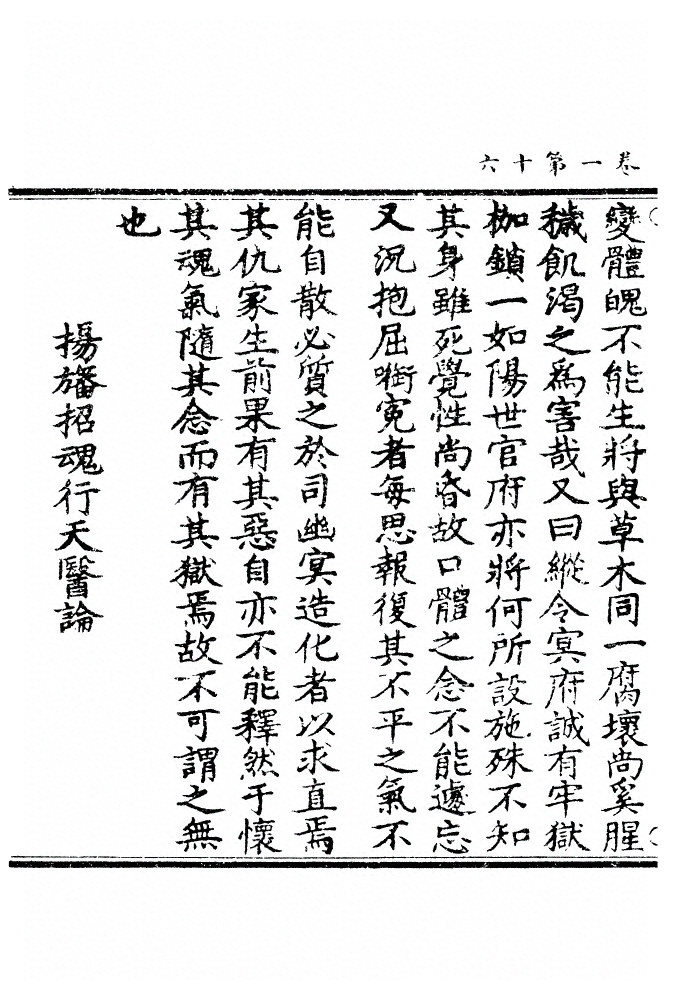 卷一第十六
變體魄不能生將與草木同一腐壞尚奚腥
穢飢渴之爲害哉又曰縱令冥府誠有牢獄
枷鎖一如陽世官府亦將何所設施殊不知
其身雖死覺性尚昏故口體之念不能遽忘
又況抱屈啣寃者每思報復其不平之氣不
能自散必質之於司幽冥造化者以求直焉
其仇家生前果有其惡自亦不能釋然于懷
其魂氣隨其念而有其獄焉故不可謂之無
也
揚旛招魂行天醫論